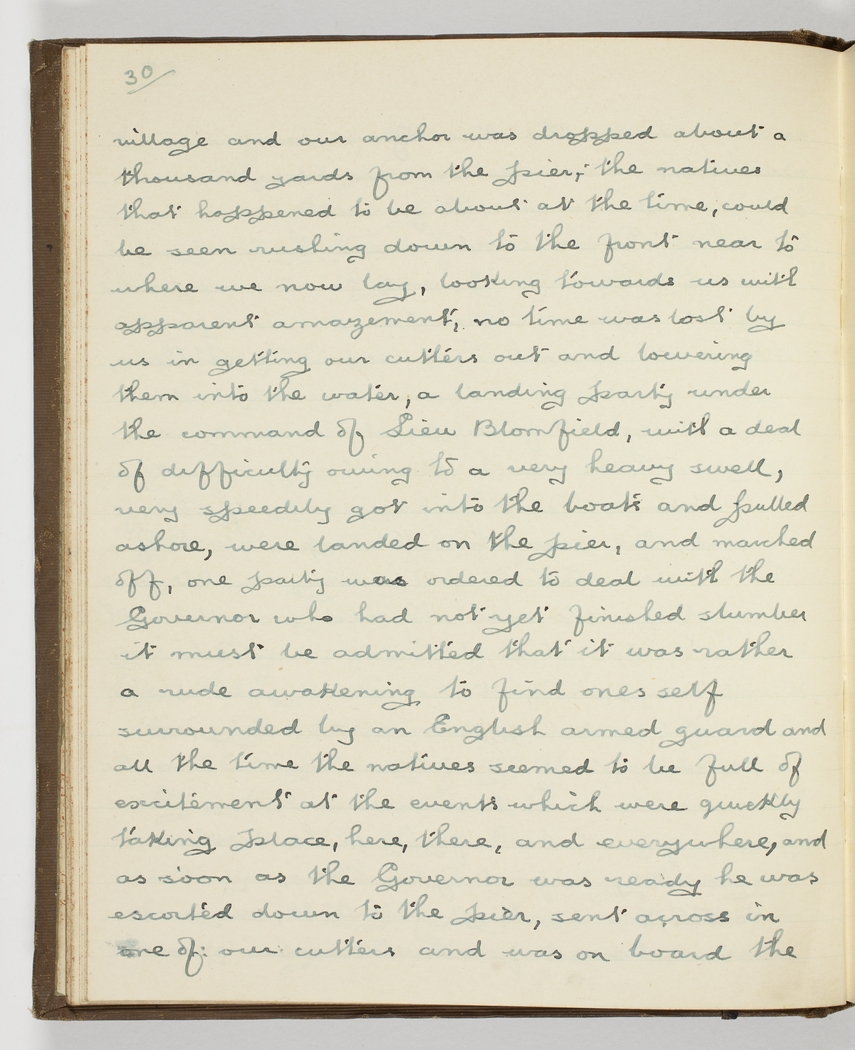 30
village and our anchor was dropped about a
thousand yards from the pier; the natives
that happened to be about at the time, could
be seen rushing down to the front near to
where we now lay, looking towards us with
apparent amazement, no time was lost by
us in getting our cutters out and lowering
them into the water, a landing party under
the command of Lieu Blomfield, with a deal
of difficulty owing to a very heavy swell,
very speedily got into the boats and pulled
ashore, were landed on the pier, and marched
off, one party was ordered to deal with the
Governor who had not yet finished slumber
it must be admitted that it was rather
a rude awakening to find ones self
surrounded by an English armed guard and
all the time the natives seemed to be full of
excitement at the events which were quickly
taking place, here, there, and everywhere, and
as soon as the Governor was ready he was
escorted down to the pier, sent across in
one of: our cutters and was on board the